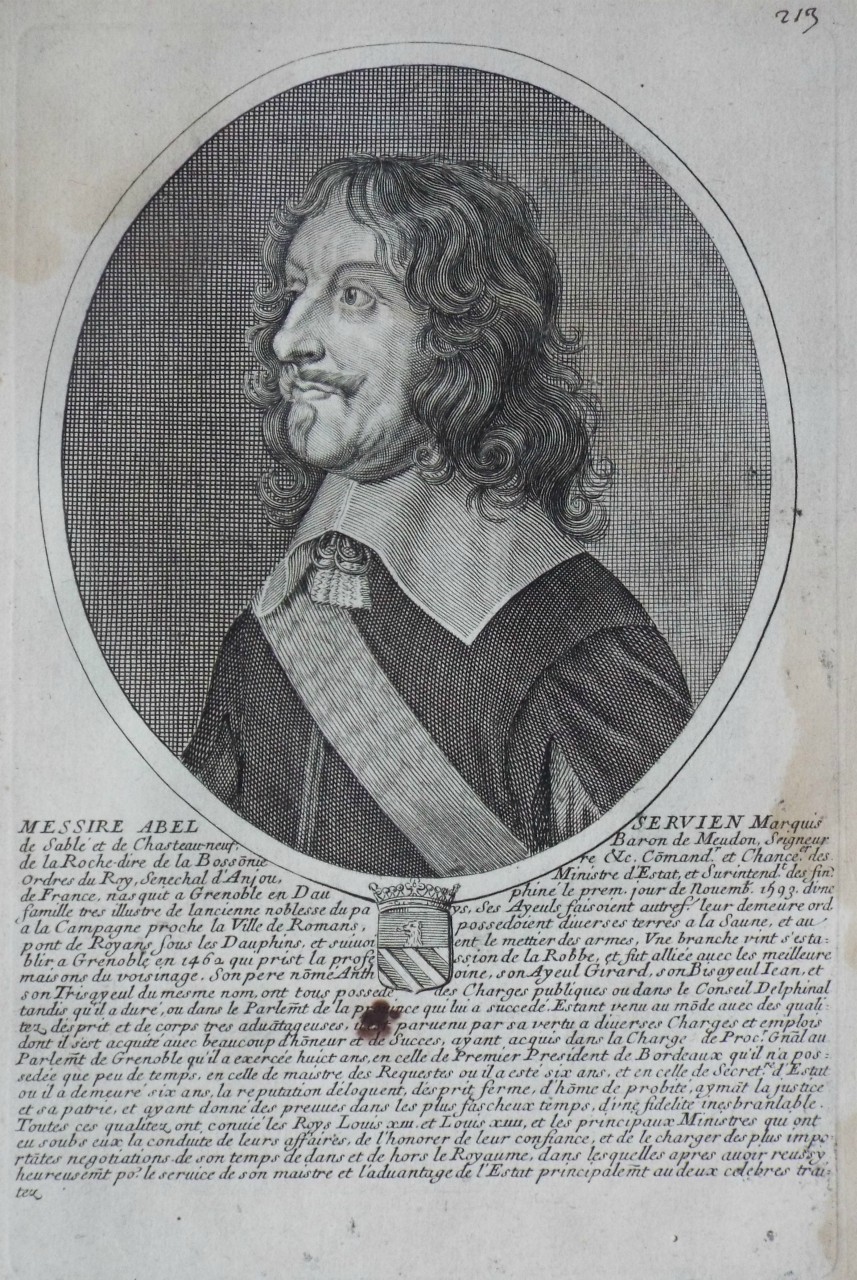 213
MESSIRE ABEL SERVIEN Marquis
de Sablé et de Chasteau-neuf. Baron de Meudon, Seigneur
de la Roche-dire de la Bossõnie re &c. Cõmand.r et Chance.er des
Ordres du Roy, Senechal d'Anjou, Ministre d'Estat, et Surintend.t des fin.ces
de France, nasquit a Grenoble en Dau phiné le prem. jour de Nouemb. 1593. d'vne
famille tres illustre de lancienne noblesse du pa ys, Ses Ayeuls faisoient autref.s leur demeure ord
a la Campagne proche la Ville de Romans, possedoient diuerses terres a la Saune, et au
pont de Royans sous les Dauphins, et suiuoi ent le mettier des armes, Vne branche vint s'esta-
blir a Grenoble en 1462 qui prist la profe ssion de la Robbe, et fut alliée auec les meilleure
maisons du voisinage. Son pere nõme Anth oine, son Ayeul Girard, son Bisayeul Iean, et
son Trisayeul du mesme nom, ont tous possede des Charges publiques ou dans le Conseil Delphinal
tandis qu'il a duré, ou dans le Parlem̃t de la prouince qui lui a succedé. Estant venu au mõde auec des quali-
tez désprit et de corps tres aduãtageuses, il est paruenu par sa vertu a diuerses Charges et emplois
dont il s'est acquité auec beaucoup d'hõneur et de Succes, ayant acquis dans la Charge de Proc.r Gnãl au
Parlem̃t de Grenoble qu'il a exercée huict ans, en celle de Premier President de Bordeaux qu'il n'a pos-
sedée que peu de temps, en celle de maistre des Requestes ou il a esté six ans, et en celle de Secret.re d'Estat
ou il a demeuré six ans, la reputation déloquent, désprit ferme, d'hõme de probité, aymãt la justice
et sa patrie, et ayant donné des preuues dans les plus fascheux temps, d'vne fidelité inesbranlable.
Toutes ces qualitez ont conuié les Roys Louis xiii. et Louis xiiii, et les principaux Ministres qui ont
eu soubs eux la conduite de leurs affaires, de l'honorer de leur confiance, et de le charger des plus impo-
rtãtes negotiations de son temps de dans et de hors le Royaume, dans lesquelles apres auoir reussy
heureusem̃t po.r le seruice de son maistre et l'aduantage de l'Estat principalem̃t au deux celebres trai-
tez